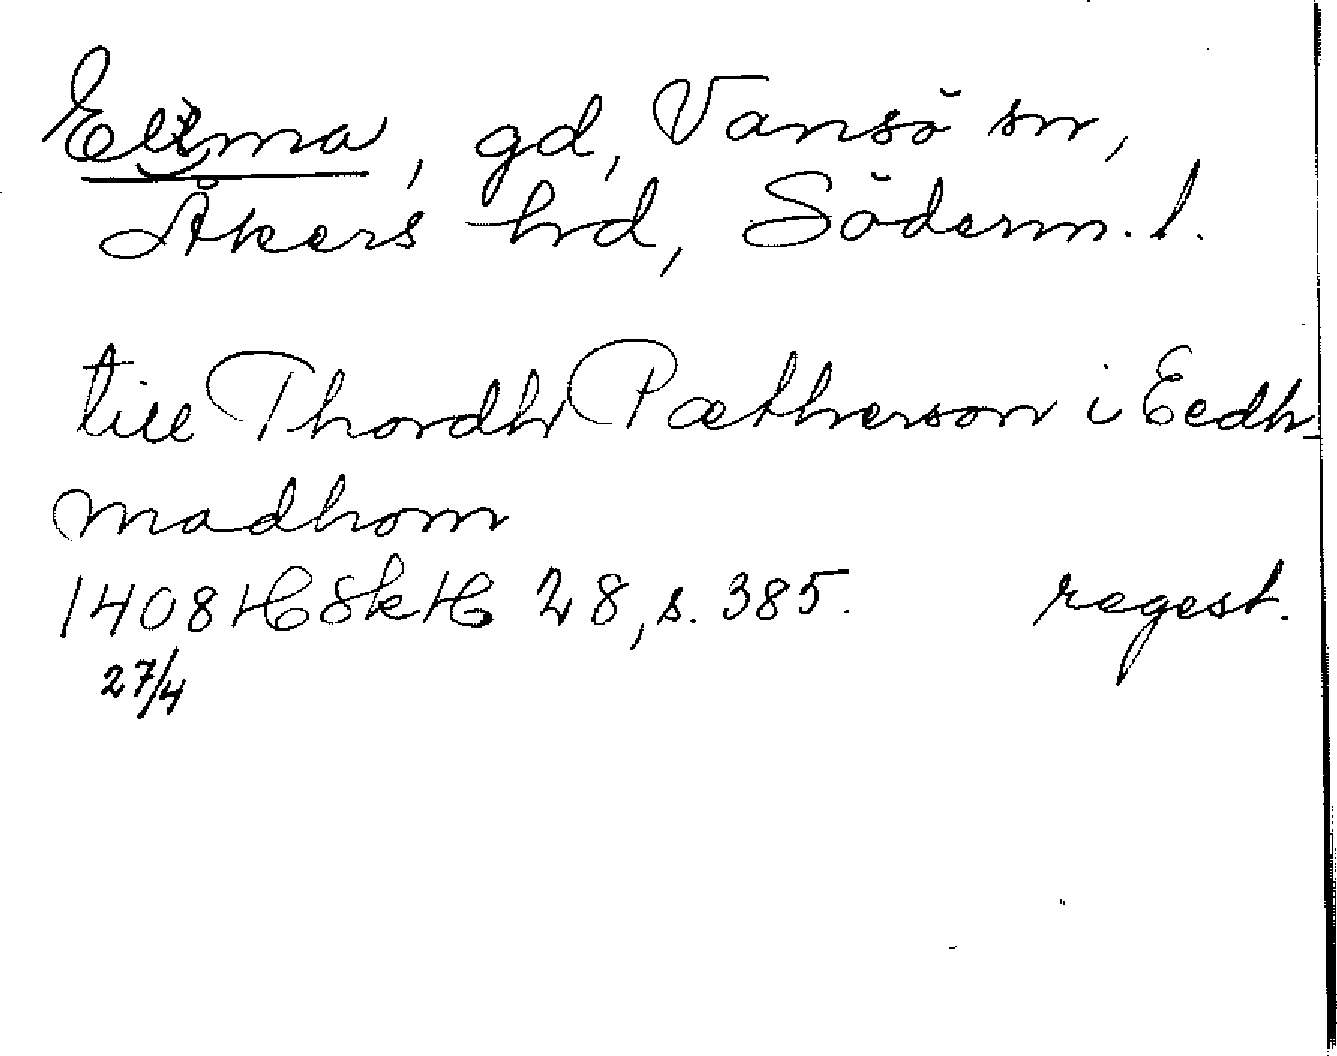 , gd, Vansö sn,
Åkers hd, Söderm. l.
till Thordh Pætherson i Eedh-
madhom
1408 HSkH 28, s. 385. regest.
27/4